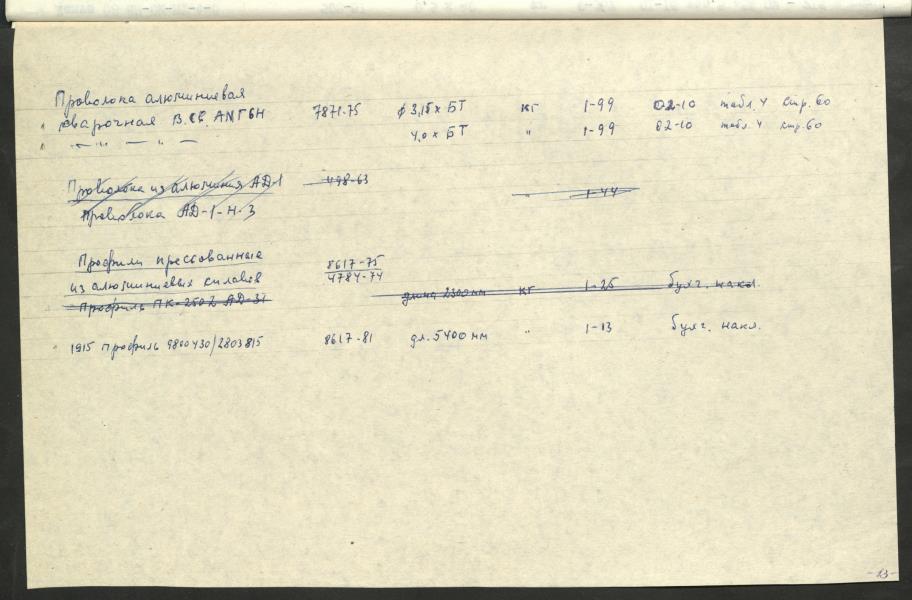 Проволока алюминиевая
" сварочная В.СВ. АМГ6Н 7871-75 ϕ 3,15 х БТ кг 1-99 02-10 табл. 4 стр. 60
" —"— —"— 4,0 х БТ " 1-99 02-10 табл. 4 стр. 60
Проволока из алюминия АД-1 498-63 " 1-44
Проволока АД-1-Н-3
Профили прессованные 8617-75
из алюминиевых сплавов 4784-74
Профиль ПК-250 АД-31 длина 2300мм кг 1-25 бухг. накл.
" 1915 Профиль 9800430/2803815 8617-81 дл. 5400 мм " 1-13 бухг. накл.